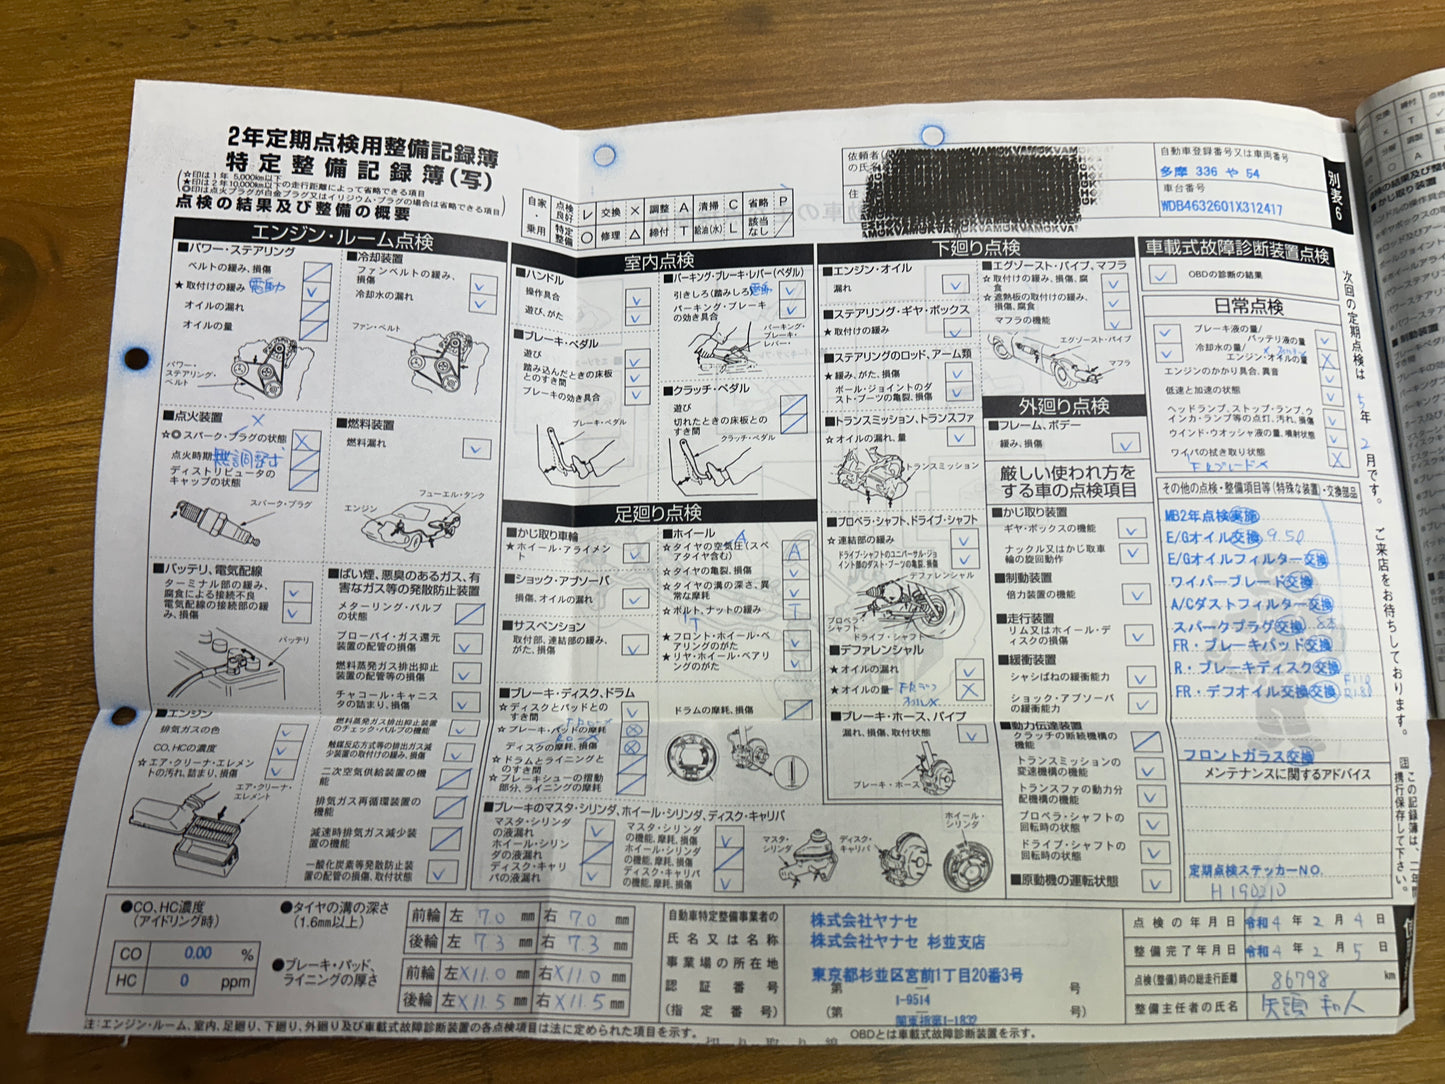 2年定期点検用整備記録簿
特定整備記録簿(写)
☆印は1年 5,000km以下
★印は2年10,000km以下の走行距離によって省略できる項目
◎印は点火プラグが白金プラグ又はイリジウム・プラグの場合は省略できる項目
点検の結果及び整備の概要
自家・乗用
点検良好 レ 交換 × 調整 A 清掃 C 省略 P
特定整備 ○ 修理 △ 締付 T 給油(水) L 該当なし ／
依頼者の氏名
住
自動車登録番号又は車両番号
多摩 336 や 54
車台番号
WDB4632601X312417
別表6
エンジン・ルーム点検
■パワー・ステアリング
ベルトの緩み、損傷
★取付けの緩み 電動
オイルの漏れ
オイルの量
パワー・ステアリング・ベルト
■冷却装置
ファンベルトの緩み、損傷
冷却水の漏れ
ファン・ベルト
■点火装置
☆◎スパーク・プラグの状態
点火時期 無調整式
ディストリビュータのキャップの状態
スパーク・プラグ
■燃料装置
燃料漏れ
フューエル・タンク
エンジン
■バッテリ、電気配線
ターミナル部の緩み、腐食による接続不良
電気配線の接続部の緩み、損傷
バッテリ
■ばい煙、悪臭のあるガス、有害なガス等の発散防止装置
メターリング・バルブの状態
ブローバイ・ガス還元装置の配管等の損傷
燃料蒸発ガス排出抑止装置の配管等の損傷
チャコール・キャニスタの詰まり、損傷
燃料蒸発ガス排出抑止装置のチェック・バルブの機能
触媒反応方式等の排出ガス減少装置の取付けの緩み、損傷
二次空気供給装置の機能
排気ガス再循環装置の機能
減速時排気ガス減少装置の機能
一酸化炭素等発散防止装置の配管の損傷、取付状態
■エンジン
排気ガスの色
CO、HCの濃度
☆エア・クリーナ・エレメントの汚れ、詰まり、損傷
エア・クリーナ・エレメント
室内点検
■ハンドル
操作具合
遊び、がた
■ブレーキ・ペダル
遊び
踏み込んだときの床板とのすき間
ブレーキの効き具合
ブレーキ・ペダル
■パーキング・ブレーキ・レバー(ペダル)
引きしろ(踏みしろ) 電動
パーキング・ブレーキの効き具合
パーキング・ブレーキ・レバー・
■クラッチ・ペダル
遊び
切れたときの床板とのすき間
クラッチ・ペダル
足廻り点検
■かじ取り車輪
★ホイール・アライメント
■ショック・アブソーバ
損傷、オイルの漏れ
■サスペンション
取付部、連結部の緩み、がた、損傷
■ホイール
☆タイヤの空気圧(スペアタイヤ含む) A
☆タイヤの亀裂、損傷
☆タイヤの溝の深さ、異常な摩耗
☆ボルト、ナットの緩み T
★フロント・ホイール・ベアリングのがた
★リヤ・ホイール・ベアリングのがた
■ブレーキ・ディスク、ドラム
☆ディスクとパッドとのすき間
☆ブレーキ・パッドの摩耗
ディスクの摩耗、損傷
☆ドラムとライニングとのすき間
☆ブレーキシューの摺動部分、ライニングの摩耗
ドラムの摩耗、損傷
■ブレーキのマスタ・シリンダ、ホイール・シリンダ、ディスク・キャリパ
マスタ・シリンダの液漏れ
ホイール・シリンダの液漏れ
ディスク・キャリパの液漏れ
マスタ・シリンダの機能、摩耗、損傷
ホイール・シリンダの機能、摩耗、損傷
ディスク・キャリパの機能、摩耗、損傷
マスタ・シリンダ
ディスク・キャリパ
ホイール・シリンダ
下廻り点検
■エンジン・オイル
漏れ
■ステアリング・ギヤ・ボックス
★取付けの緩み
■ステアリングのロッド、アーム類
★緩み、がた、損傷
ボール・ジョイントのダスト・ブーツの亀裂、損傷
■トランスミッション、トランスファ
☆オイルの漏れ、量
トランスミッション
■プロペラ・シャフト、ドライブ・シャフト
★連結部の緩み
ドライブ・シャフトのユニバーサル・ジョイント部のダスト・ブーツの亀裂、損傷
デファレンシャル
プロペラ・シャフト
ドライブ・シャフト
■デファレンシャル
★オイルの漏れ
★オイルの量
■ブレーキ・ホース、パイプ
漏れ、損傷、取付状態
ブレーキ・ホース
■エグゾースト・パイプ、マフラ
☆取付けの緩み、損傷、腐食
☆遮熱板の取付けの緩み、損傷、腐食
マフラの機能
エグゾースト・パイプ
マフラ
外廻り点検
■フレーム、ボデー
緩み、損傷
厳しい使われ方をする車の点検項目
■かじ取り装置
ギヤ・ボックスの機能
ナックル又はかじ取車輪の旋回動作
■制動装置
倍力装置の機能
■走行装置
リム又はホイール・ディスクの損傷
■緩衝装置
シャシばねの緩衝能力
ショック・アブソーバの緩衝能力
■動力伝達装置
クラッチの断続機構の機能
トランスミッションの変速機構の機能
トランスファの動力分配機構の機能
プロペラ・シャフトの回転時の状態
ドライブ・シャフトの回転時の状態
■原動機の運転状態
車載式故障診断装置点検
OBDの診断の結果
日常点検
ブレーキ液の量/
バッテリ液の量
冷却水の量/
エンジン・オイルの量
エンジンのかかり具合、異音
低速と加速の状態
ヘッドランプ、ストップ・ランプ、ウインカ・ランプ等の点灯、汚れ、損傷
ウインド・ウオッシャ液の量、噴射状態
ワイパの拭き取り状態
Frブレード×
その他の点検・整備項目等(特殊な装置)・交換部品
MB2年点検実施
E/Gオイル交換 9.5ℓ
E/Gオイルフィルター交換
ワイパーブレード交換
A/Cダストフィルター交換
スパークプラグ交換 8本
FR・ブレーキパッド交換
R・ブレーキディスク交換
FR・デフオイル交換
フロントガラス交換
メンテナンスに関するアドバイス
定期点検ステッカーNO.
H190210
次回の定期点検は 5年 2月です。 ご来店をお待ちしております。
この記録簿は、一年間携行保存して下さい。
●CO、HC濃度(アイドリング時)
CO 0.00 %
HC 0 ppm
●タイヤの溝の深さ(1.6mm以上)
前輪 左 7.0 mm 右 7.0 mm
後輪 左 7.3 mm 右 7.3 mm
●ブレーキ・パッド、ライニングの厚さ
前輪 左×11.0 mm 右×11.0 mm
後輪 左×11.5 mm 右×11.5 mm
自動車特定整備事業者の氏名又は名称
事業場の所在地
認証番号
(指定番号)
株式会社ヤナセ
株式会社ヤナセ 杉並支店
東京都杉並区宮前1丁目20番3号
第 1-9514 号
(第 関東指第1-1832 号)
点検の年月日 令和4年2月4日
整備完了年月日 令和4年2月5日
点検(整備)時の総走行距離 86798 km
整備主任者の氏名 矢頭 和人
注:エンジン・ルーム、室内、足廻り、下廻り、外廻り及び車載式故障診断装置の各点検項目は法に定められた項目を示す。
OBDとは車載式故障診断装置を示す。
切り取り線